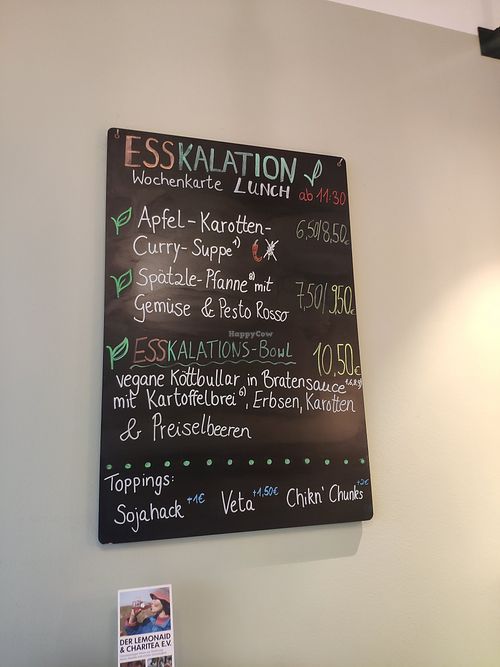 ESSKALATION
Wochenkarte LUNCH ab 11:30
Apfel-Karotten-
Curry-Suppe 1) 6,50/8,50€
Spätzle-Pfanne 8) mit
Gemüse & Pesto Rosso 7,50/9,50€
ESSKALATIONS-BOWL 10,50€
vegane Köttbullar in Bratensauce
mit Kartoffelbrei 6), Erbsen, Karotten
& Preiselbeeren
Toppings:
Sojahack +1€ Veta +1,50€ Chikn' Chunks +2€
HappyCow
DER LEMONAID
& CHARITEA E.V.